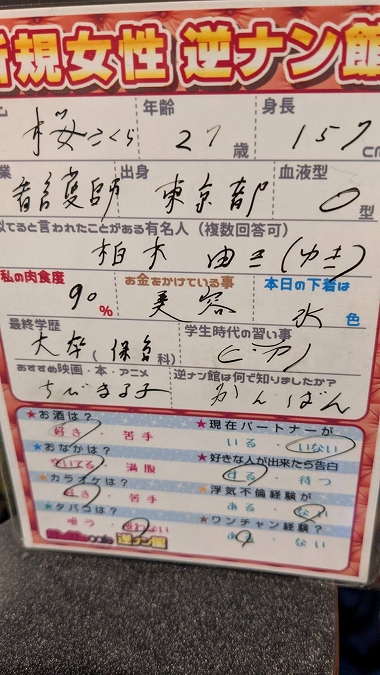 新規女性 逆ナン館
年齢 身長
桜さくら 27歳 157cm
業 出身 血液型
看護師 東京都 O型
似てると言われたことがある有名人（複数回答可）
柏木 由き(ゆき)
私の肉食度 お金をかけている事 本日の下着は
90% 美容 水色
最終学歴 学生時代の習い事
大卒(保育科) ピアノ
おすすめ映画・本・アニメ 逆ナン館は何で知りましたか？
ちびまる子 かんばん
★お酒は？ ★現在パートナーが
好き・苦手 いる・いない
★おなかは？ ★好きな人が出来たら告白
空いてる・満腹 する・待つ
★カラオケは？ ★浮気不倫経験が
好き・苦手 ある・ない
★タバコは？ ★ワンチャン経験？
吸う・吸わない ある・ない
cafe 逆ナン館